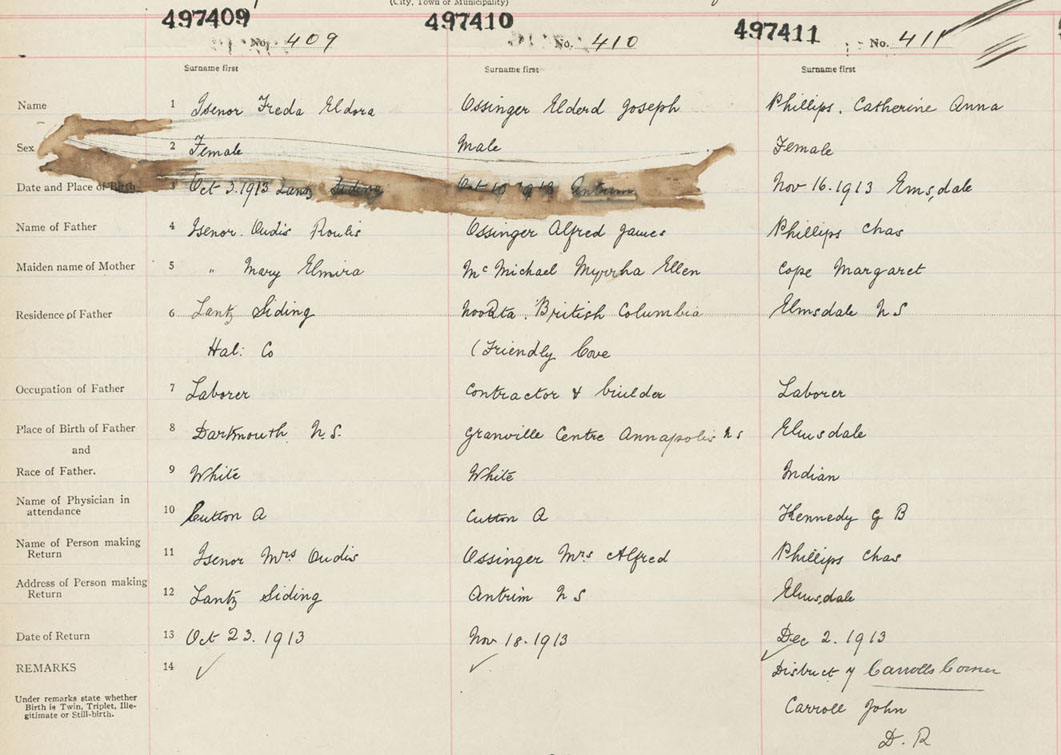 (City, Town or Municipality)
497409 497410 497411
No. 409 No. 410 No. 411
Surname first Surname first Surname first
Name 1 Isenor Freda Eldora Ossinger Elderd Joseph Phillips. Catherine Anna
Sex 2 Female Male Female
Date and Place of Birth 3 Oct 3.1913 Lantz Siding Oct 1913 Antrim Nov 16.1913 Elmsdale
Name of Father 4 Isenor. Oudis Ossinger Alfred James Phillips Chas
Maiden name of Mother 5 " Mary Elmira McMichael Myrrha Ellen Cope Margaret
Residence of Father 6 Lantz Siding Nootka. British Columbia Elmsdale N S
Hal: Co (Friendly Cove
Occupation of Father 7 Laborer Contractor & builder Laborer
Place of Birth of Father 8 Dartmouth N.S. Granville Centre Annapolis N S Elmsdale
and
Race of Father. 9 White White Indian
Name of Physician in
attendance 10 Cutton A Cutton A Kennedy G B
Name of Person making
Return 11 Isenor Mrs Oudis Ossinger Mrs Alfred Phillips Chas
Address of Person making
Return 12 Lantz Siding Antrim N S Elmsdale
Date of Return 13 Oct 23.1913 Nov 18.1913 Dec 2.1913
REMARKS 14 District of Carrolls Corner
Under remarks state whether
Birth is Twin, Triplet, Ille-
gitimate or Still-birth. Carroll John
D. R